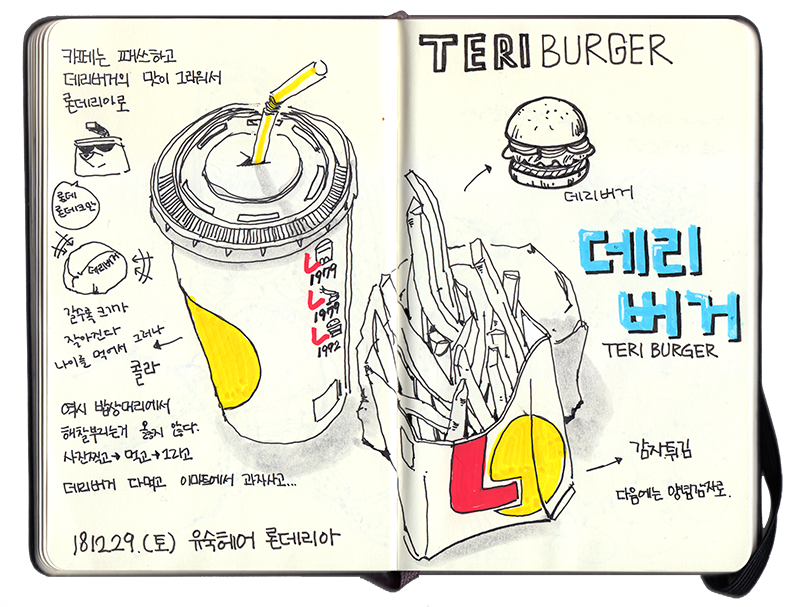 카페는 패쓰하고
데리버거의 맛이 그리워서
론데리아로
론데
론데크만
데리버거
갈수록 크기가
작아진다
나이를 먹어서 그러나
콜라
역시 밥상머리에서
해찰부리는거 옳지 않다.
사진찍고→먹고→그리고
데리버거 다먹고 이마트에서 과자사고...
181229.(토) 유숙헤어 론데리아
L
1979
L
1979
L
1992
TERI BURGER
데리버거
데리
버거
TERI BURGER
L
감자튀김
다음에는 양념감자로.